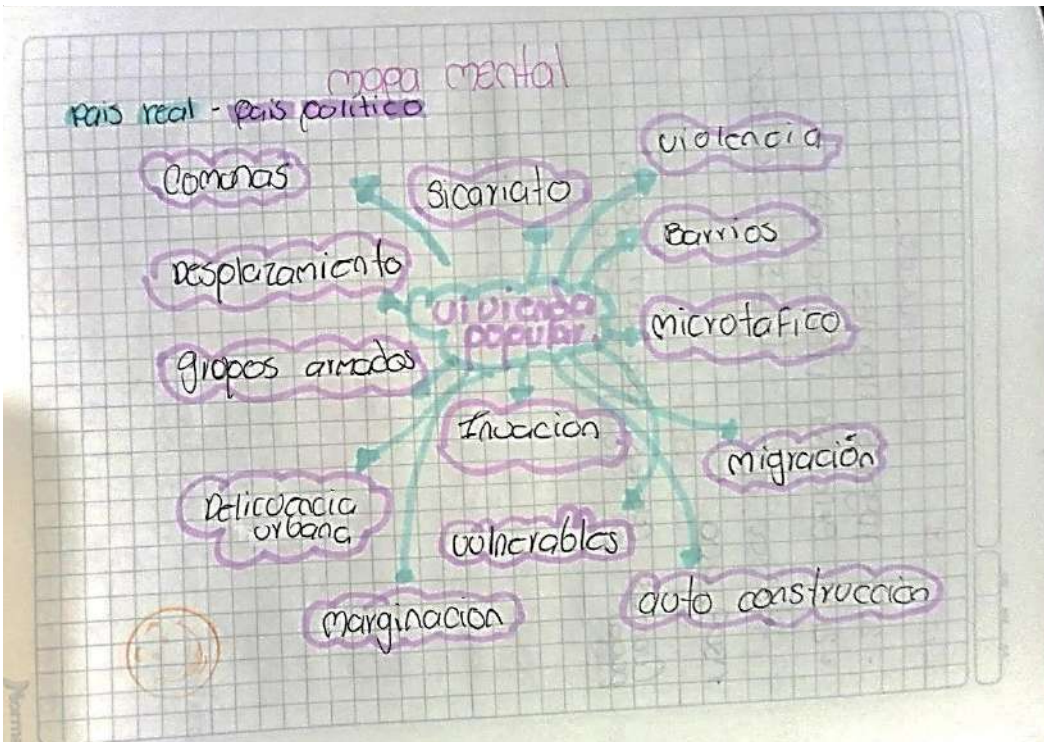 mapa mental
País real - País político
Comunas
Sicariato
violencia
Barrios
Desplazamiento
vivienda
popular.
microtafico
grupos armados
Invacion
migración
Delicuencia
urbana
vulnerables
auto construcción
marginacion